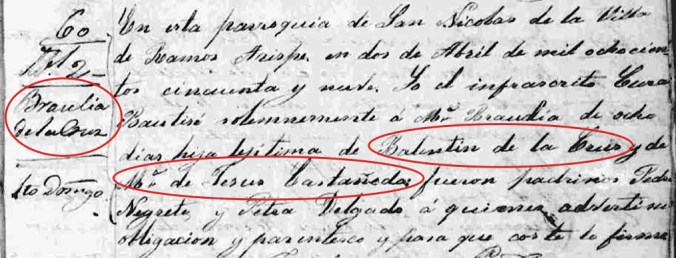 60
Bl. 2
Braulia
de la Cruz
Sto Domgo
En esta parroquia de San Nicolas de la Villa
de Ramos Arispe, en dos de Abril de mil ochocien
tos cincuenta y nueve. Yo el infrascrito Cura
Bautisé solemnemente á Mª Braulia de ocho
dias hija legitima de Balentin de la Crus y de
Mª de Jesus Castañeda, fueron padrinos Pedro
Negrete y Petra Delgado á quienes advertí su
obligacion y parentesco y para que coste lo firme